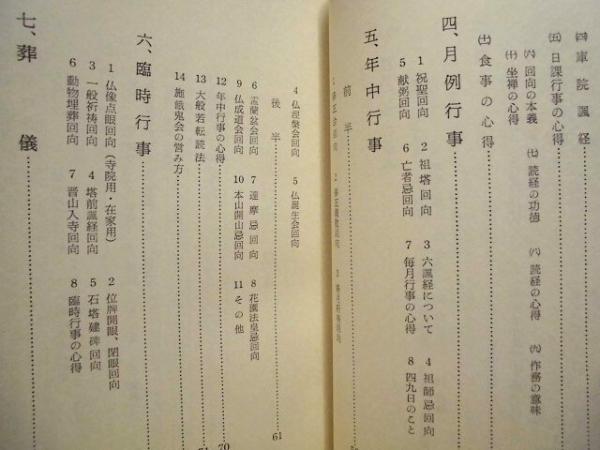 ㈣ 庫院諷経
㈤ 日課行事の心得
㈥ 回向の本義 ㈦ 読経の功徳 ㈧ 読経の心得 ㈨ 作務の意味
㈩ 坐禅の心得
食事の心得
四、月例行事
1 祝聖回向 2 祖塔回向 3 六諷経について 4 祖師忌回向
5 献粥回向 6 亡者忌回向 7 毎月行事の心得 8 四九日のこと
五、年中行事
前半
4 仏涅槃会回向 5 仏誕生会回向
後半 61
6 盂蘭盆会回向 7 達摩忌回向 8 花園法皇忌回向
9 仏成道会回向 10 本山開山忌回向 11 その他
12 年中行事の心得 70
13 大般若転読法
14 施餓鬼会の営み方
六、臨時行事
1 仏像点眼回向(寺院用・在家用) 2 位牌開眼、閉眼回向
3 一般祈祷回向 4 塔前諷経回向 5 石塔建碑回向
6 動物埋葬回向 7 晋山入寺回向 8 臨時行事の心得
七、葬儀